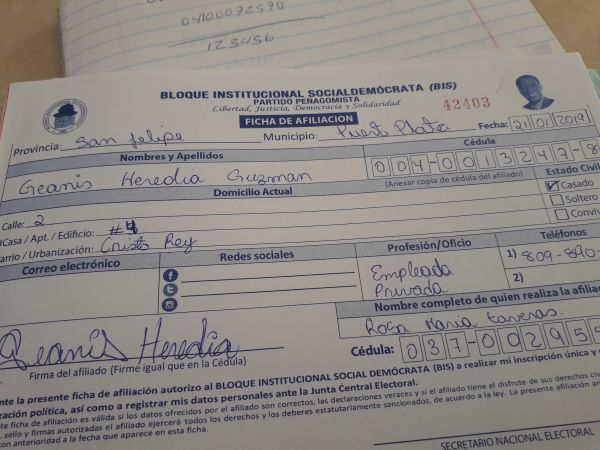 04100072570
123456
BLOQUE INSTITUCIONAL SOCIALDEMÓCRATA (BIS)
PARTIDO PEÑAGOMISTA
Libertad, Justicia, Democracia y Solidaridad
42403
FICHA DE AFILIACION
Provincia: San felipe Municipio: Puert Plata Fecha: 21/01/2019
Nombres y Apellidos Cédula
Geanis Heredia Guzman 004-0013247-8
(Anexar copia de cédula del afiliado)
Domicilio Actual Estado Civil
Calle: 2 Casado
Casa / Apt. / Edificio: #4 Soltero
arrio / Urbanización: Cristo Rey Convi
Correo electrónico Redes sociales Profesión/Oficio Teléfonos
Empleada Privada 1) 809-890-
2)
Nombre completo de quien realiza la afilia
Rosa Maria taveras
Geanis Heredia Cédula: 037-002959
Firma del afiliado (Firme igual que en la Cédula)
nte la presente ficha de afiliación autorizo al BLOQUE INSTITUCIONAL SOCIAL DEMÓCRATA (BIS) a realizar mi inscripción única y
zación política, así como a registrar mis datos personales ante la Junta Central Electoral.
te ficha de afiliación es válida si los datos ofrecidos por el afiliado son correctos, las declaraciones veraces y si el afiliado tiene el disfrute de sus derechos civi
, sello y firmas autorizadas el afiliado ejercerá todos los derechos y los deberes estatutariamente sancionados, de acuerdo a la ley. La presente afiliación an
on anterioridad a la fecha que aparece en esta ficha.
SECRETARIO NACIONAL ELECTORAL